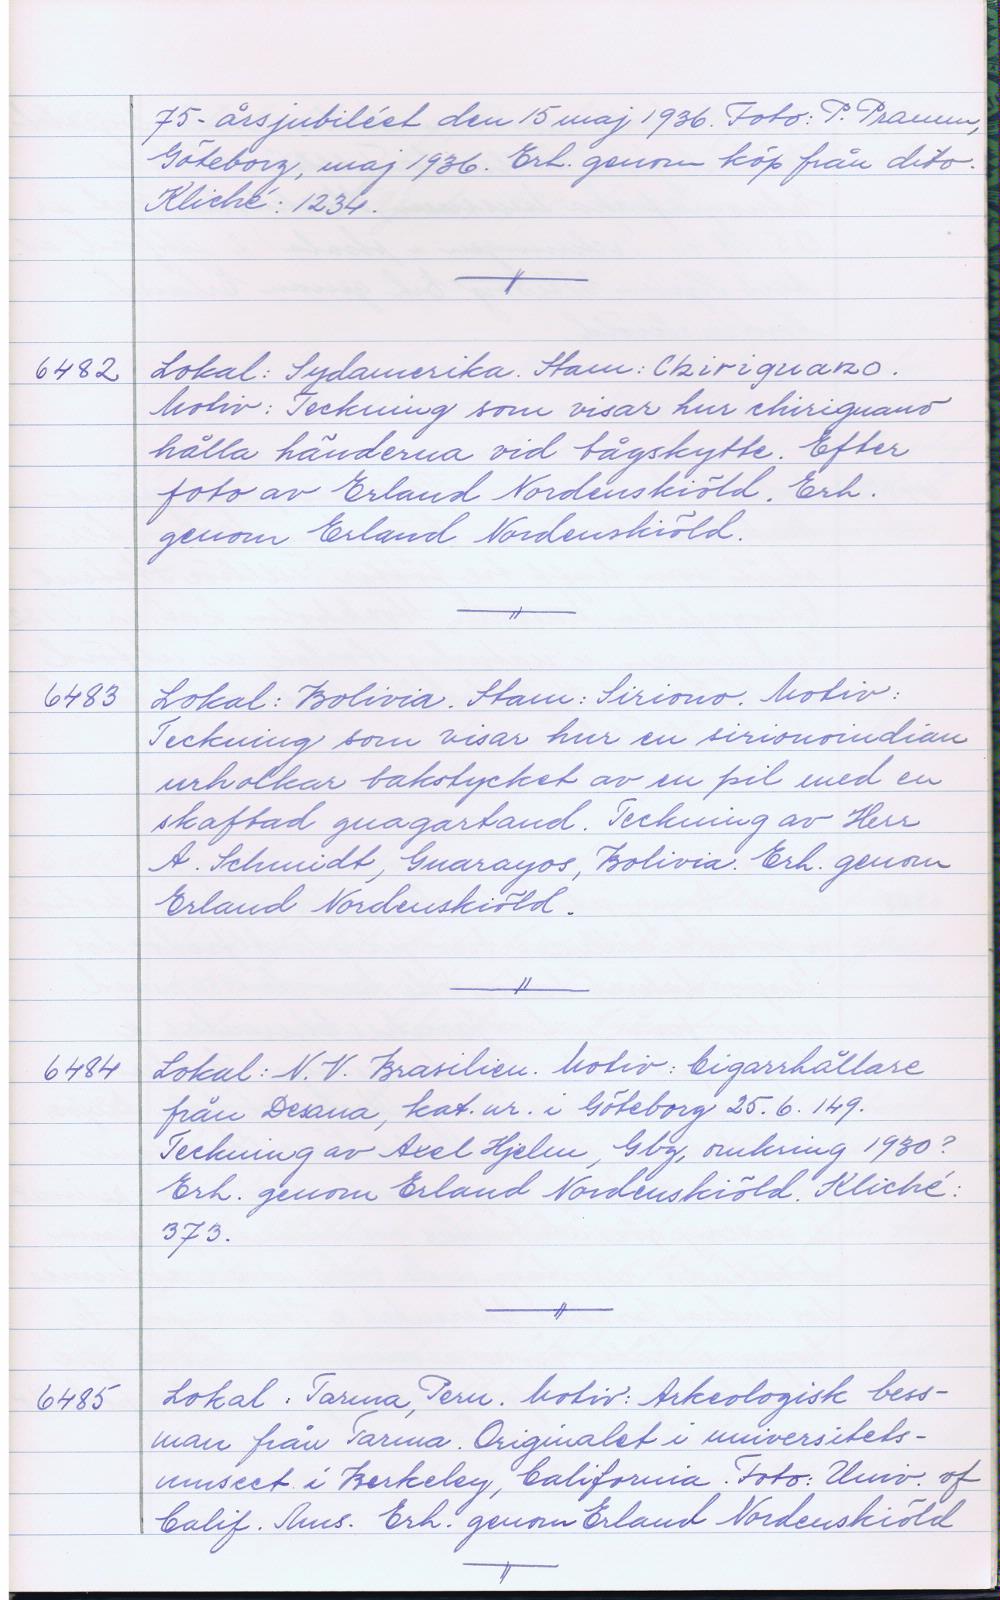 75-årsjubiléet den 15 maj 1936. Foto: P. Pramm,
Göteborg, maj 1936. Erh. genom köp från dito.
Kliché: 1234.
6482 Lokal: Sydamerika. Stam: Chiriguano.
Motiv: Teckning som visar hur chiriguano
hålla händerna vid bågskytte. Efter
foto av Erland Nordenskiöld. Erh.
genom Erland Nordenskiöld.
6483 Lokal: Bolivia. Stam: Siriono. Motiv:
Teckning som visar hur en sirionoindian
urholkar bakstycket av en pil med en
skaftad gnagartand. Teckning av Herr
A. Schmidt, Guarayos, Bolivia. Erh. genom
Erland Nordenskiöld.
6484 Lokal: N.V. Brasilien. Motiv: Cigarrhållare
från Desana, kat. nr. i Göteborg 25.6.149.
Teckning av Axel Hjelm, Gbg, omkring 1930?
Erh. genom Erland Nordenskiöld. Kliché:
373.
6485 Lokal: Tarma, Peru. Motiv: Arkeologisk bess-
man från Tarma. Originalet i universitets-
museet i Berkeley, California. Foto: Univ. of
Calif. Mus. Erh. genom Erland Nordenskiöld